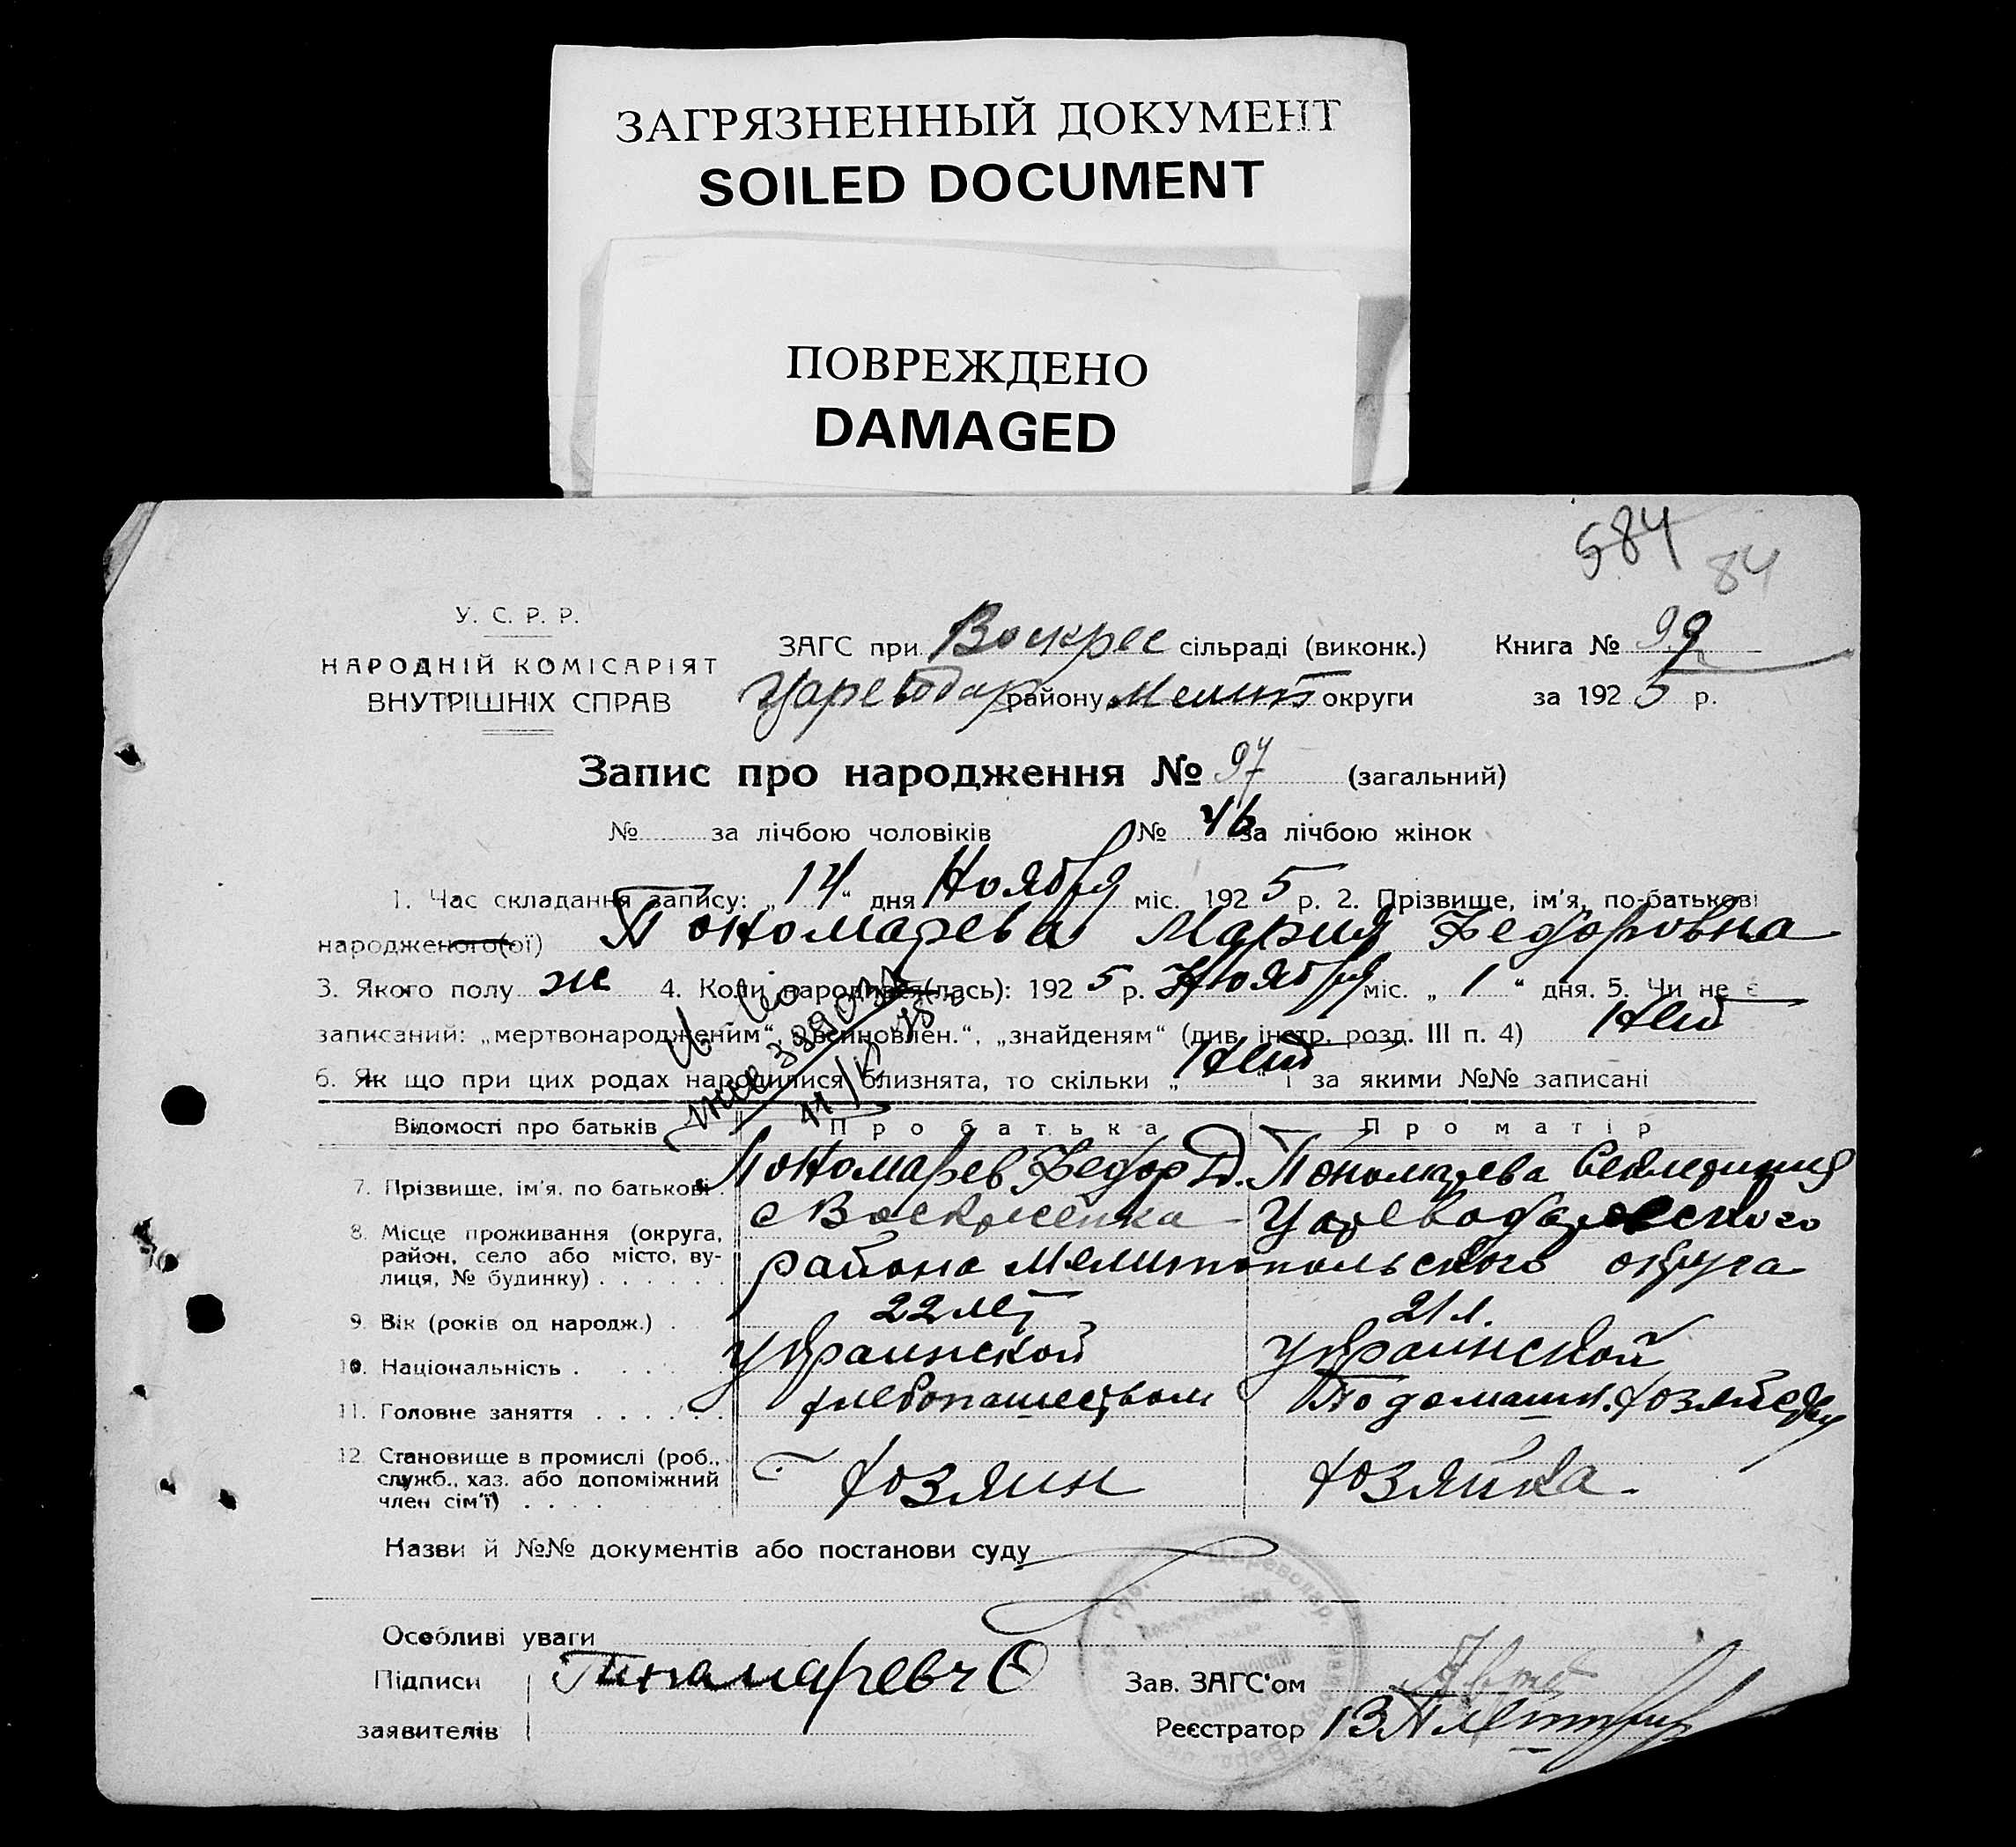 ЗАГРЯЗНЕННЫЙ ДОКУМЕНТ
SOILED DOCUMENT
ПОВРЕЖДЕНО
DAMAGED
584 84
У. С. Р. Р.
НАРОДНІЙ КОМІСАРІЯТ
ВНУТРІШНІХ СПРАВ
ЗАГС при Воскрес сільраді (виконк.) Книга № 99
Цареводар району Мелит округи за 1925 р.
Запис про народження № 97 (загальний)
№ за лічбою чоловіків № 46 за лічбою жінок
1. Час складання запису: „14“ дня Ноября міс. 1925 р. 2. Прізвище, ім'я, по-батькові
народженого(ої) Пономарева Мария Федоровна
3. Якого полу ж 4. Коли народився(лась): 1925 р. Ноября міс. „1“ дня. 5. Чи не є
записаний: „мертвонародженим“, „всиновлен.“, „знайденям“ (див. інстр. розд. III п. 4) Нет
6. Як що при цих родах народилися близнята, то скільки „Нет“ і за якими №№ записані
Відомості про батьків Про батька Про матір
7. Прізвище, ім'я, по батькові. Пономарев Федор Д. Пономарева
8. Місце проживання (округа, район, село або місто, вулиця, № будинку) . . . . . . с Воскресенка Цареводаровского
района Мелитопольского округа
9. Вік (років од народж.) . 22 лет 21 л.
10. Національність . . . . . . Украинской Украинской
11. Головне заняття . . . . . . хлебопашеством По домашн. хозяйству
12. Становище в промислі (роб., служб., хаз. або допоміжний член сім'ї) . . . . . . хозяин хозяйка.
Назви й №№ документів або постанови суду
Особливі уваги
Підписи заявителів Пинамаревч Ѳ
Зав. ЗАГС'ом
Реєстратор